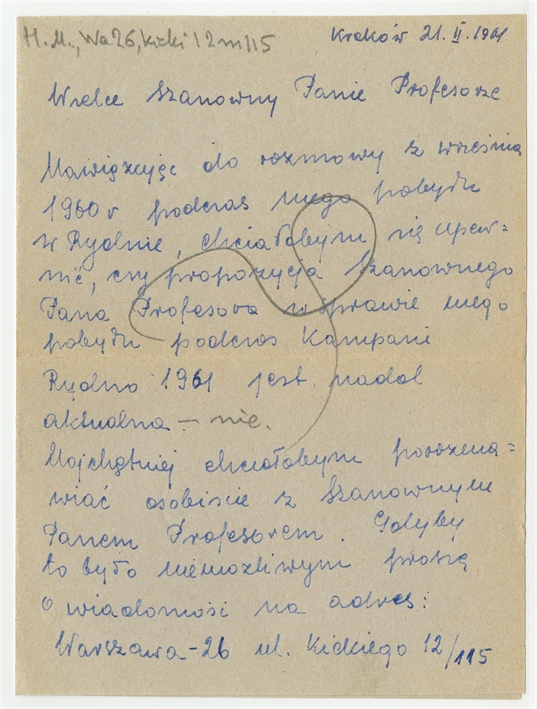 H. M., Wa 26, Kicki 12 m 115
Kraków 21. II. 1961
Wielce Szanowny Panie Profesorze
Nawiązując do rozmowy z września
1960 r podczas mego pobytu
w Rydnie, chciałabym się upew=
nić, czy propozycja Szanownego
Pana Profesora w sprawie mego
pobytu podczas Kampani
Rydno 1961 jest nadal
aktualna - nie.
Najchętniej chciałabym porozma=
wiać osobiscie z Szanownym
Panem Profesorem. Gdyby
to było niemożliwym proszę
o wiadomość na adres:
Warszawa-26 ul. Kickiego 12/115